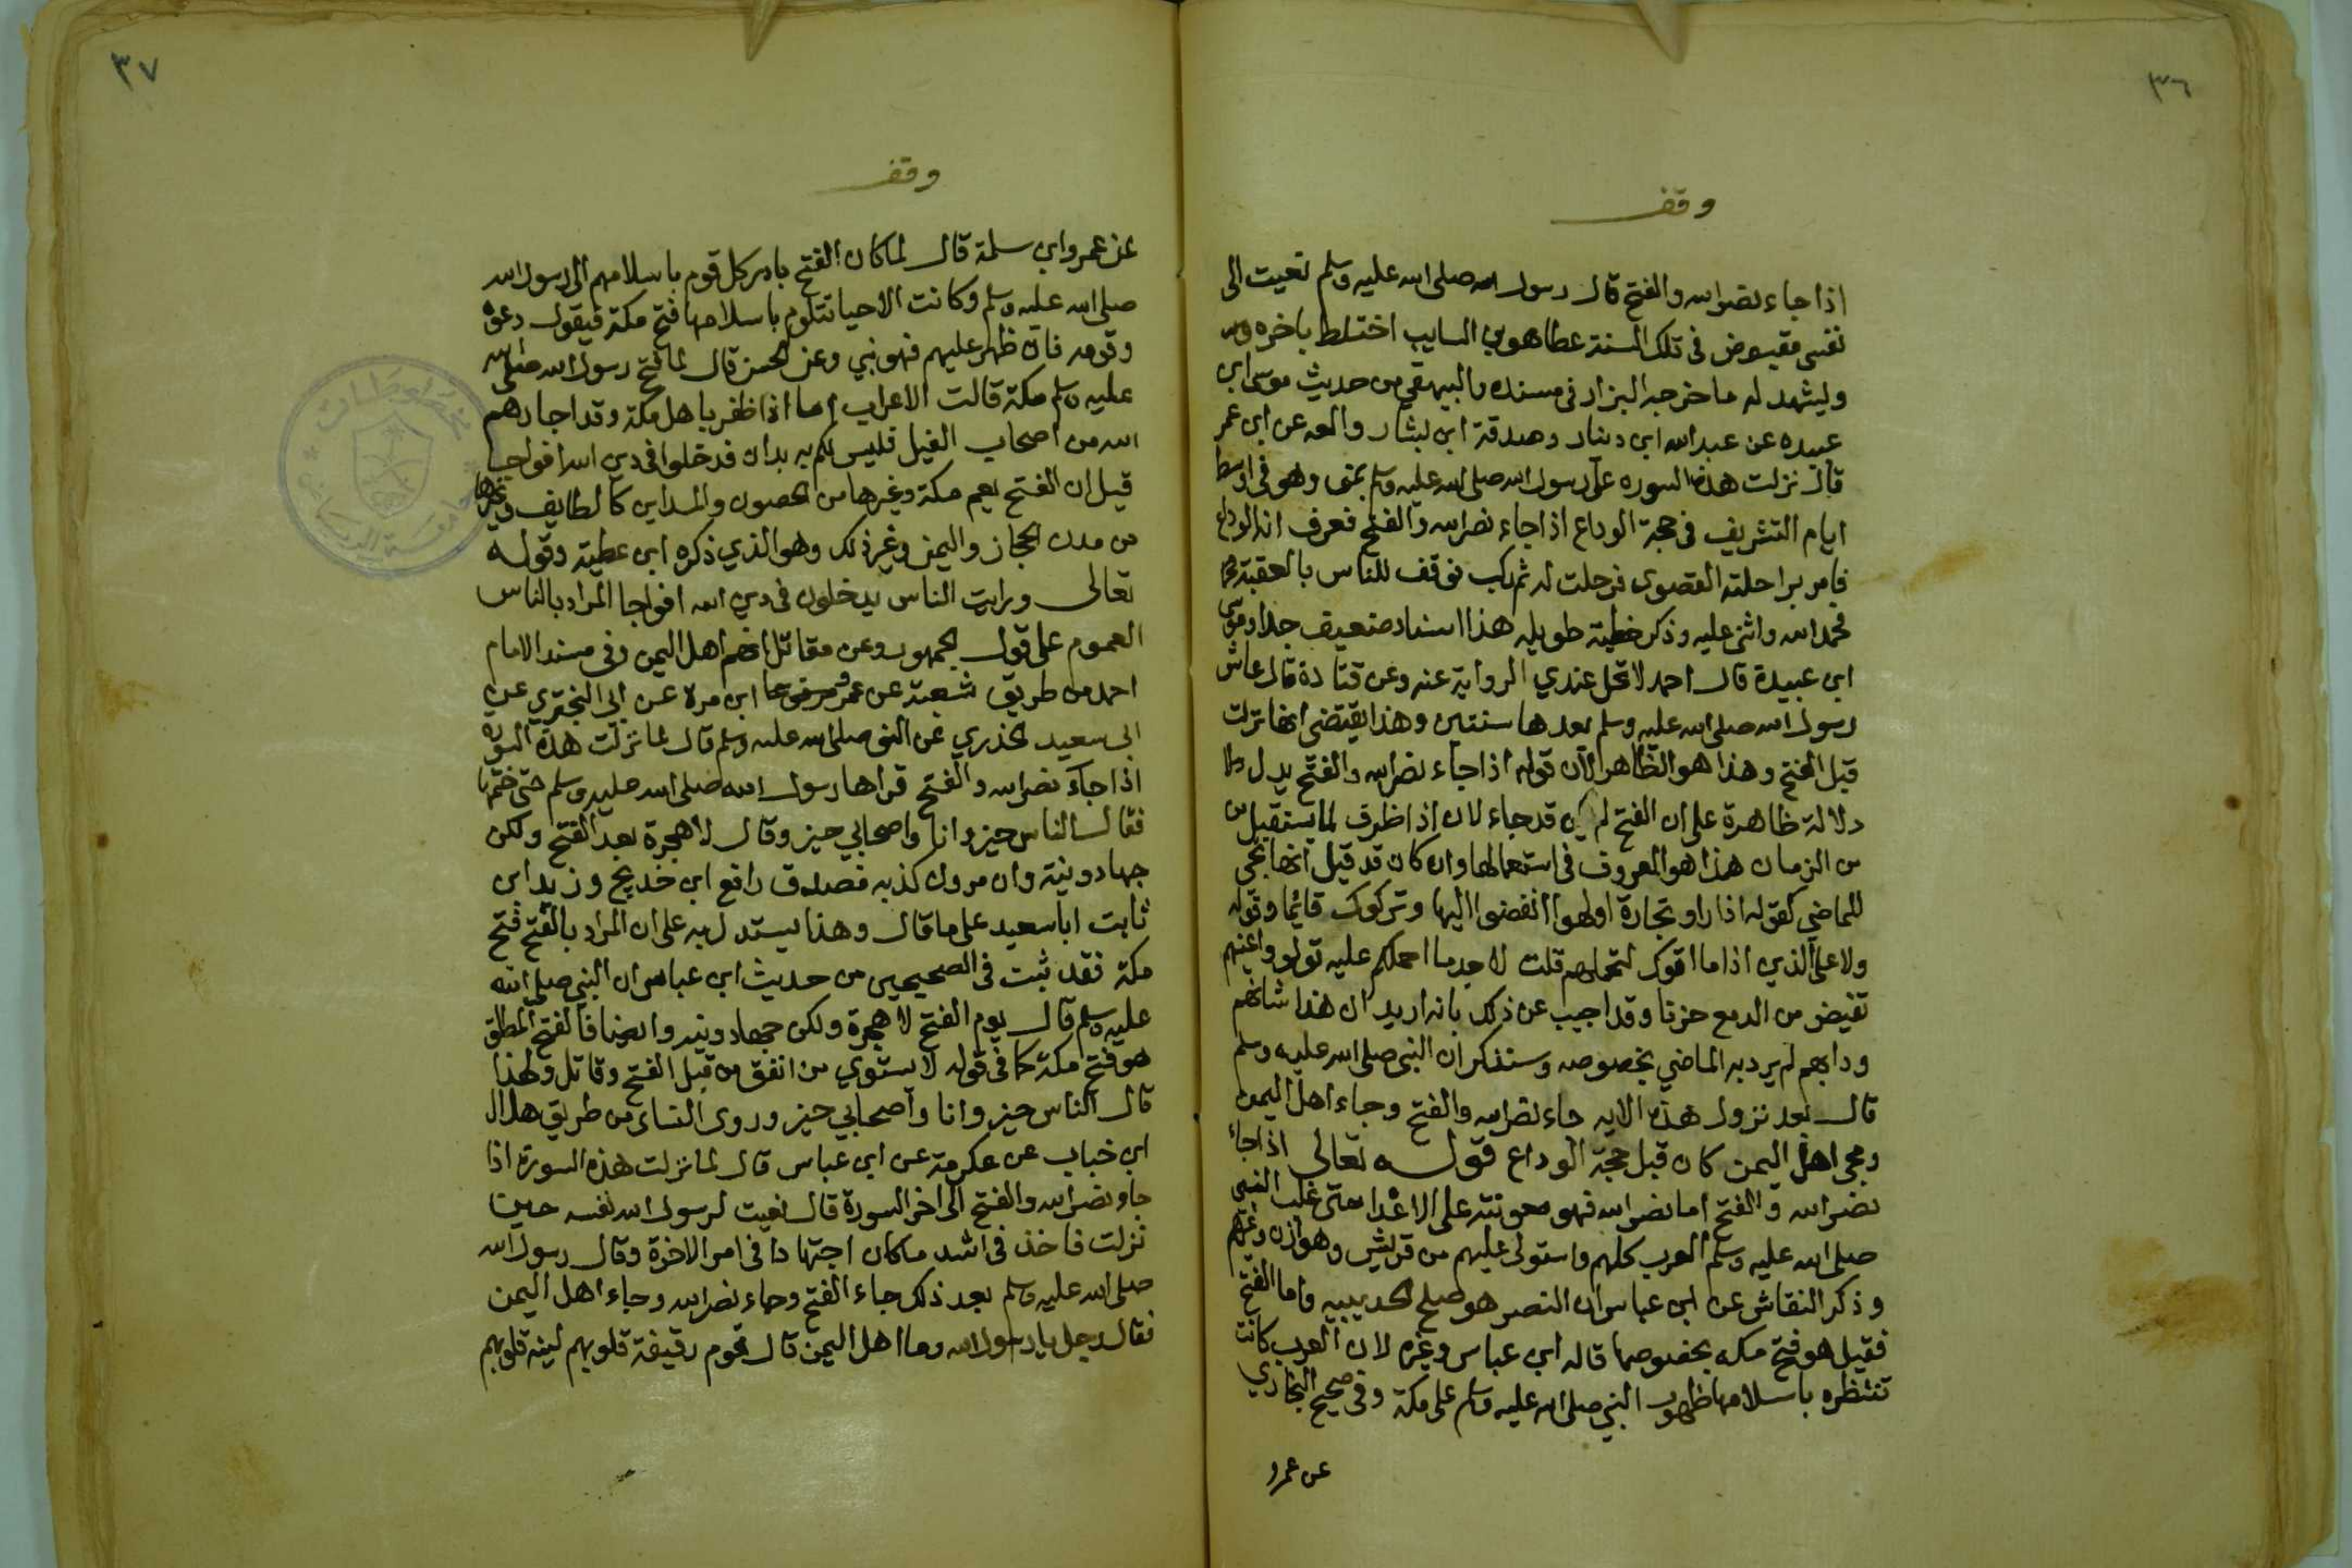 ٣٦
وقف
اذا جاء نصر الله والفتح قال رسول الله صلى الله عليه وسلم نعيت الى
نفسى مقبوض فى تلك السنة عطا هو بن السايب اختلط باخره
وليشهد له ما خرجه البزار فى مسنده والبيهقى من حديث موسى ابن
عبيده عن عبد الله ابن دينار وصدقة ابن بشار عن ابن عمر
قال نزلت هذه السوره على رسول الله صلى الله عليه وسلم بمنى وهو فى اوسط
ايام التشريق فى حجة الوداع اذا جاء نصر الله والفتح فعرف انه الوداع
فامر براحلته القصوى فرحلت له ثم ركب فوقف للناس بالعقبة
فحمد الله واثنى عليه وذكر خطبة طويله هذا اسناد ضعيف جدا وموسى
ابن عبيدة قال احمد لا تحل عندي الرواية عنه وعن قتادة قال عاش
رسول الله صلى الله عليه وسلم بعدها سنتين وهذا يقتضى انها نزلت
قبل الفتح وهذا هو الظاهر لان قوله اذا جاء نصر الله والفتح يدل
دلالة ظاهرة على ان الفتح لم يكن قد جاء لان اذا ظرف لما يستقبل من
من الزمان هذا هو المعروف فى استعمالها وان كان قد قيل انها تجى
للماضي كقوله اذا راو تجارة او لهوا انفضوا اليها وتركوك قائما وقوله
ولا على الذين اذا ما اتوك لتحملهم قلت لا اجد ما احملكم عليه تولو واعينهم
تفيض من الدمع حزنا وقد اجيب عن ذلك بانه اريد ان هذا شانهم
ودابهم لم يرد به الماضي بخصوصه وسنذكر ان النبى صلى الله عليه وسلم
قال بعد نزول هذه الايه جاء نصر الله والفتح وجاء اهل اليمن
ومجى اهل اليمن كان قبل حجة الوداع قوله تعالى اذا جاء
نصر الله والفتح اما نصر الله فهو معونته على الاعدا حتى غلب النبى
صلى الله عليه وسلم العرب كلهم واستولى عليهم من قريش وهوازن وغيرهم
وذكر النقاش عن ابن عباس ان النصر هو صلح الحديبيه واما الفتح
فقيل هو فتح مكه بخصوصها قاله ابن عباس وغيره لان العرب كانت
تنتظره باسلامها ظهور النبى صلى الله عليه وسلم على مكة وفى صحيح البخاري
عن عمرو
٣٧
وقف
عن عمرو ابن سلمة قال لما كان الفتح بادر كل قوم باسلامهم الى رسول الله
صلى الله عليه وسلم وكانت الاحيا تتلوم باسلامها فتح مكة فيقول دعوه
وقومه فان ظهر عليهم فهو نبي وعن الحسن قال لما فتح رسول الله صلى الله
عليه وسلم مكة قالت الاعراب اما اذا ظفر باهل مكة وقد اجارهم
الله من اصحاب الفيل فليس لكم به يدان فدخلوا فى دين الله افواجا
قيل ان الفتح يعم مكة وغيرها من الحصون والمداين كالطايف وغيرها
من مدن الحجاز واليمن وغير ذلك وهو الذي ذكره ابن عطية وقوله
تعالى ورايت الناس يدخلون فى دين الله افواجا المراد بالناس
العموم على قول الجمهور وعن مقاتل انهم اهل اليمن وفى مسند الامام
احمد من طريق شعبة عن عمرو ابن مرة عن ابى البختري عن
ابى سعيد الخذري عن النبى صلى الله عليه وسلم قال لما نزلت هذه السوره
اذا جاء نصر الله والفتح قراها رسول الله صلى الله عليه وسلم حتى ختمها
فقال الناس حيز وانا واصحابي حيز وقال لا هجرة بعد الفتح ولكن
جهاد ونية وان مروان كذبه فصدق رافع ابن خديج وزيد ابن
ثابت ابا سعيد على ما قال وهذا يستدل به على ان المراد بالفتح فتح
مكة فقد ثبت فى الصحيحين من حديث ابن عباس ان النبى صلى الله
عليه وسلم قال يوم الفتح لا هجرة ولكن جهاد ونيه وايضا فالفتح المطلق
هو فتح مكة كما فى قوله لا يستوي من انفق من قبل الفتح وقاتل ولهذا
قال الناس حيز وانا واصحابي حيز وروى النساى من طريق هلال
ابن خباب عن عكرمة عن ابن عباس قال لما نزلت هذه السورة اذا
جاء نصر الله والفتح الى اخر السورة قال نعيت لرسول الله نفسه حين
نزلت فاخذ فى اشد ما كان اجتهادا فى امر الاخرة وقال رسول الله
صلى الله عليه وسلم بعد ذلك جاء الفتح وجاء نصر الله وجاء اهل اليمن
فقال رجل يا رسول الله وما اهل اليمن قال قوم رقيقة قلوبهم لينة قلوبهم